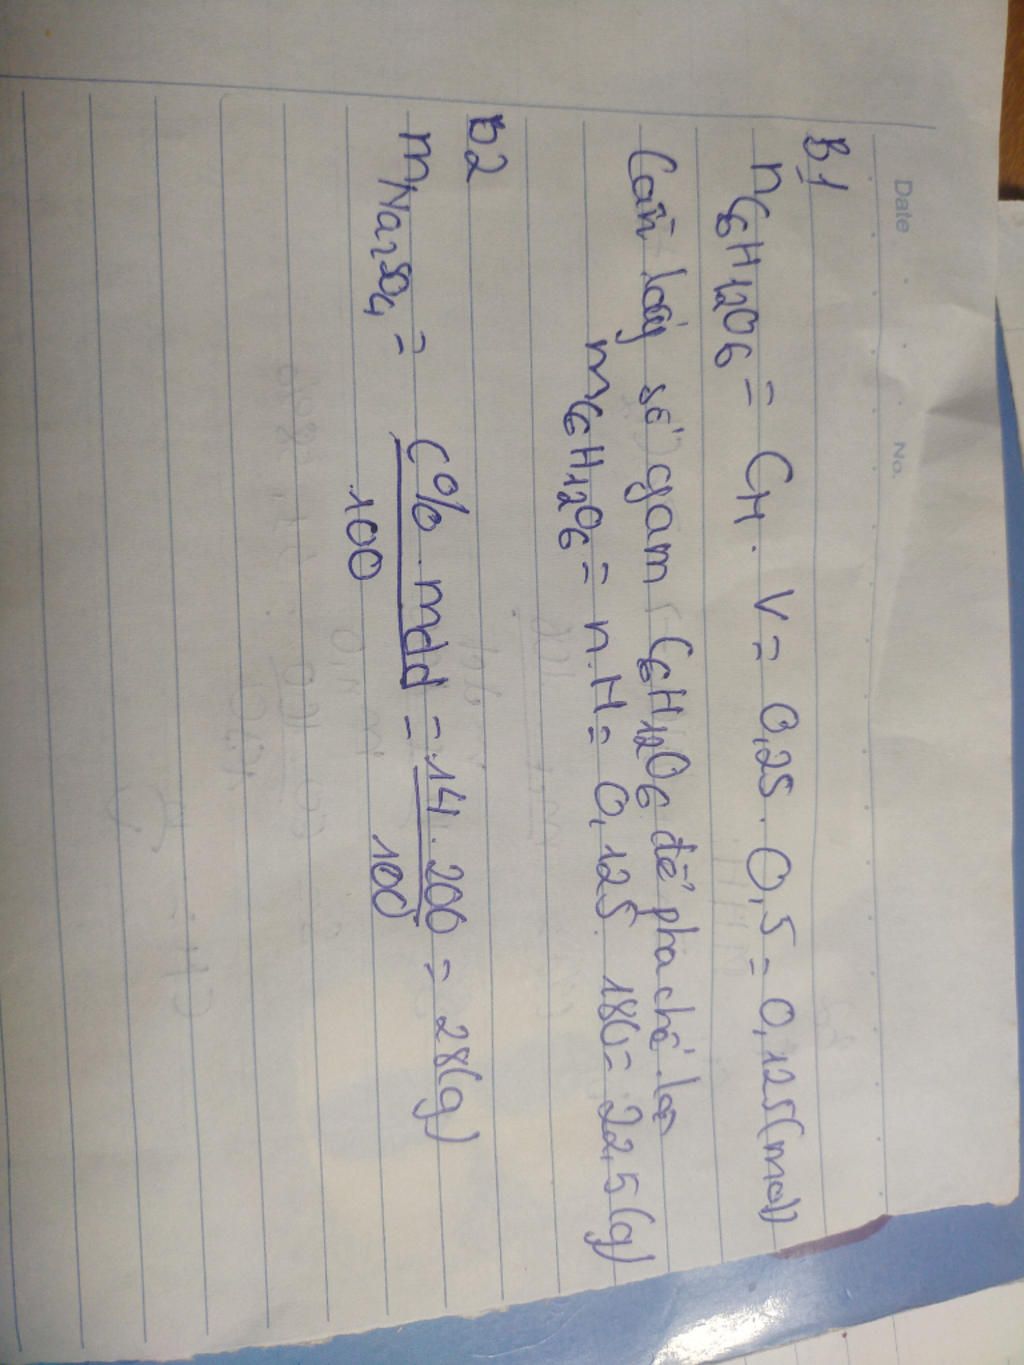 Date
No.
B1
nC6H12O6 = CM . V = 0,25 . 0,5 = 0,125(mol)
Cần lấy số gam C6H12O6 để pha chế là
mC6H12O6 = n.M = 0,125. 180 = 22,5(g)
B2
mNa2SO4 = C% . mdd / 100 = 14 . 200 / 100 = 28(g)